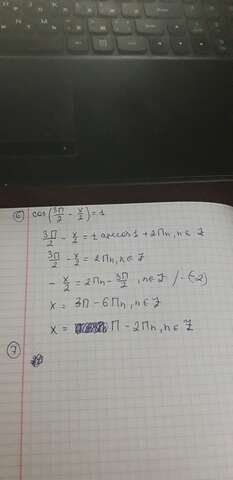 6 cos(3π/2 - x/2) = 1
3π/2 - x/2 = ± arccos 1 + 2πn, n ∈ Z
3π/2 - x/2 = 2πn, n ∈ Z
- x/2 = 2πn - 3π/2, n ∈ Z / ·(-2)
x = 3π - 6πn, n ∈ Z
x = π - 2πn, n ∈ Z
7